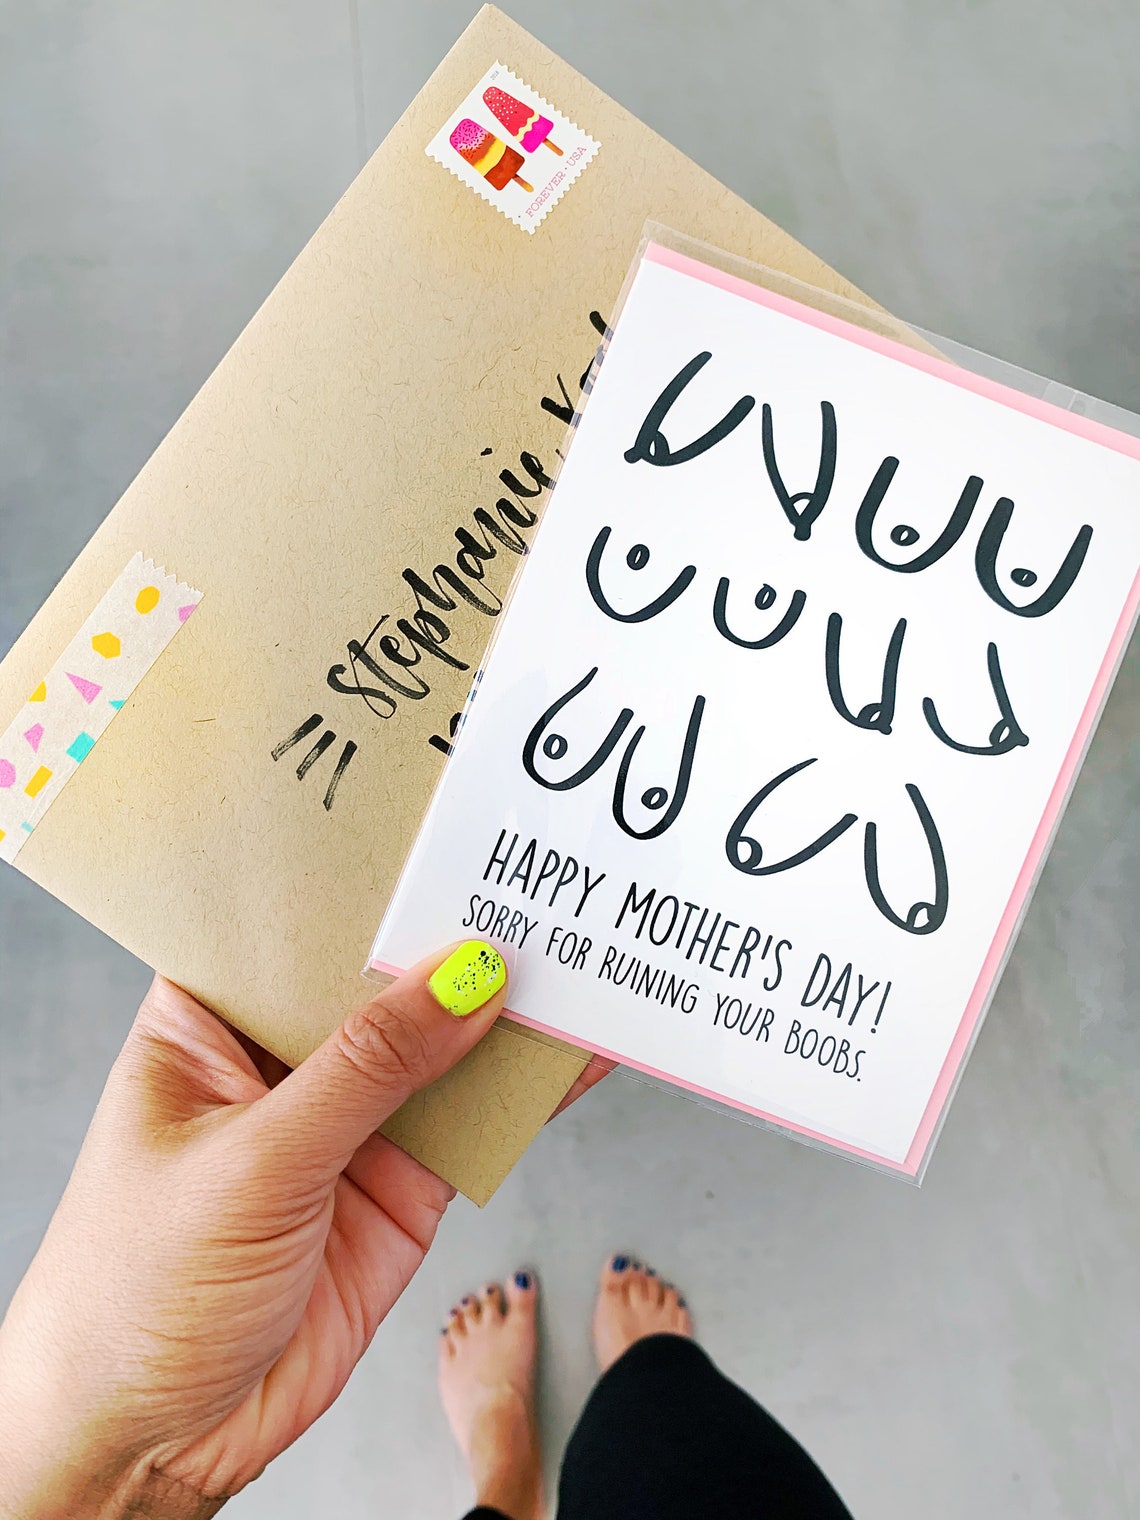 2018
FOREVER · USA
Stephanie
HAPPY MOTHER'S DAY!
SORRY FOR RUINING YOUR BOOBS.